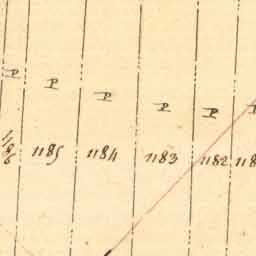 P P P P P P
1186 1185 1184 1183 1182 118